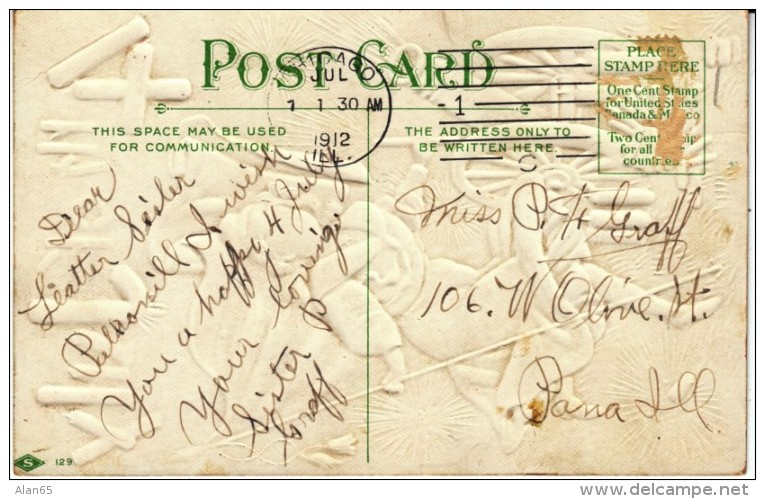 POST CARD
CHICAGO
JUL
7
1 30 AM
1912
ILL.
1
PLACE
STAMP HERE
One Cent Stamp
for United States
Canada &
Two Cent
for all
countries.
THIS SPACE MAY BE USED
FOR COMMUNICATION.
THE ADDRESS ONLY TO
BE WRITTEN HERE.
Dear
Sister
I wish
You a happy 4 July
Your loving
Sister P
Graff
Miss P. H Graff
106. W Olive. St.
Pana Ill
S 129
Alan65
© delcampe.net